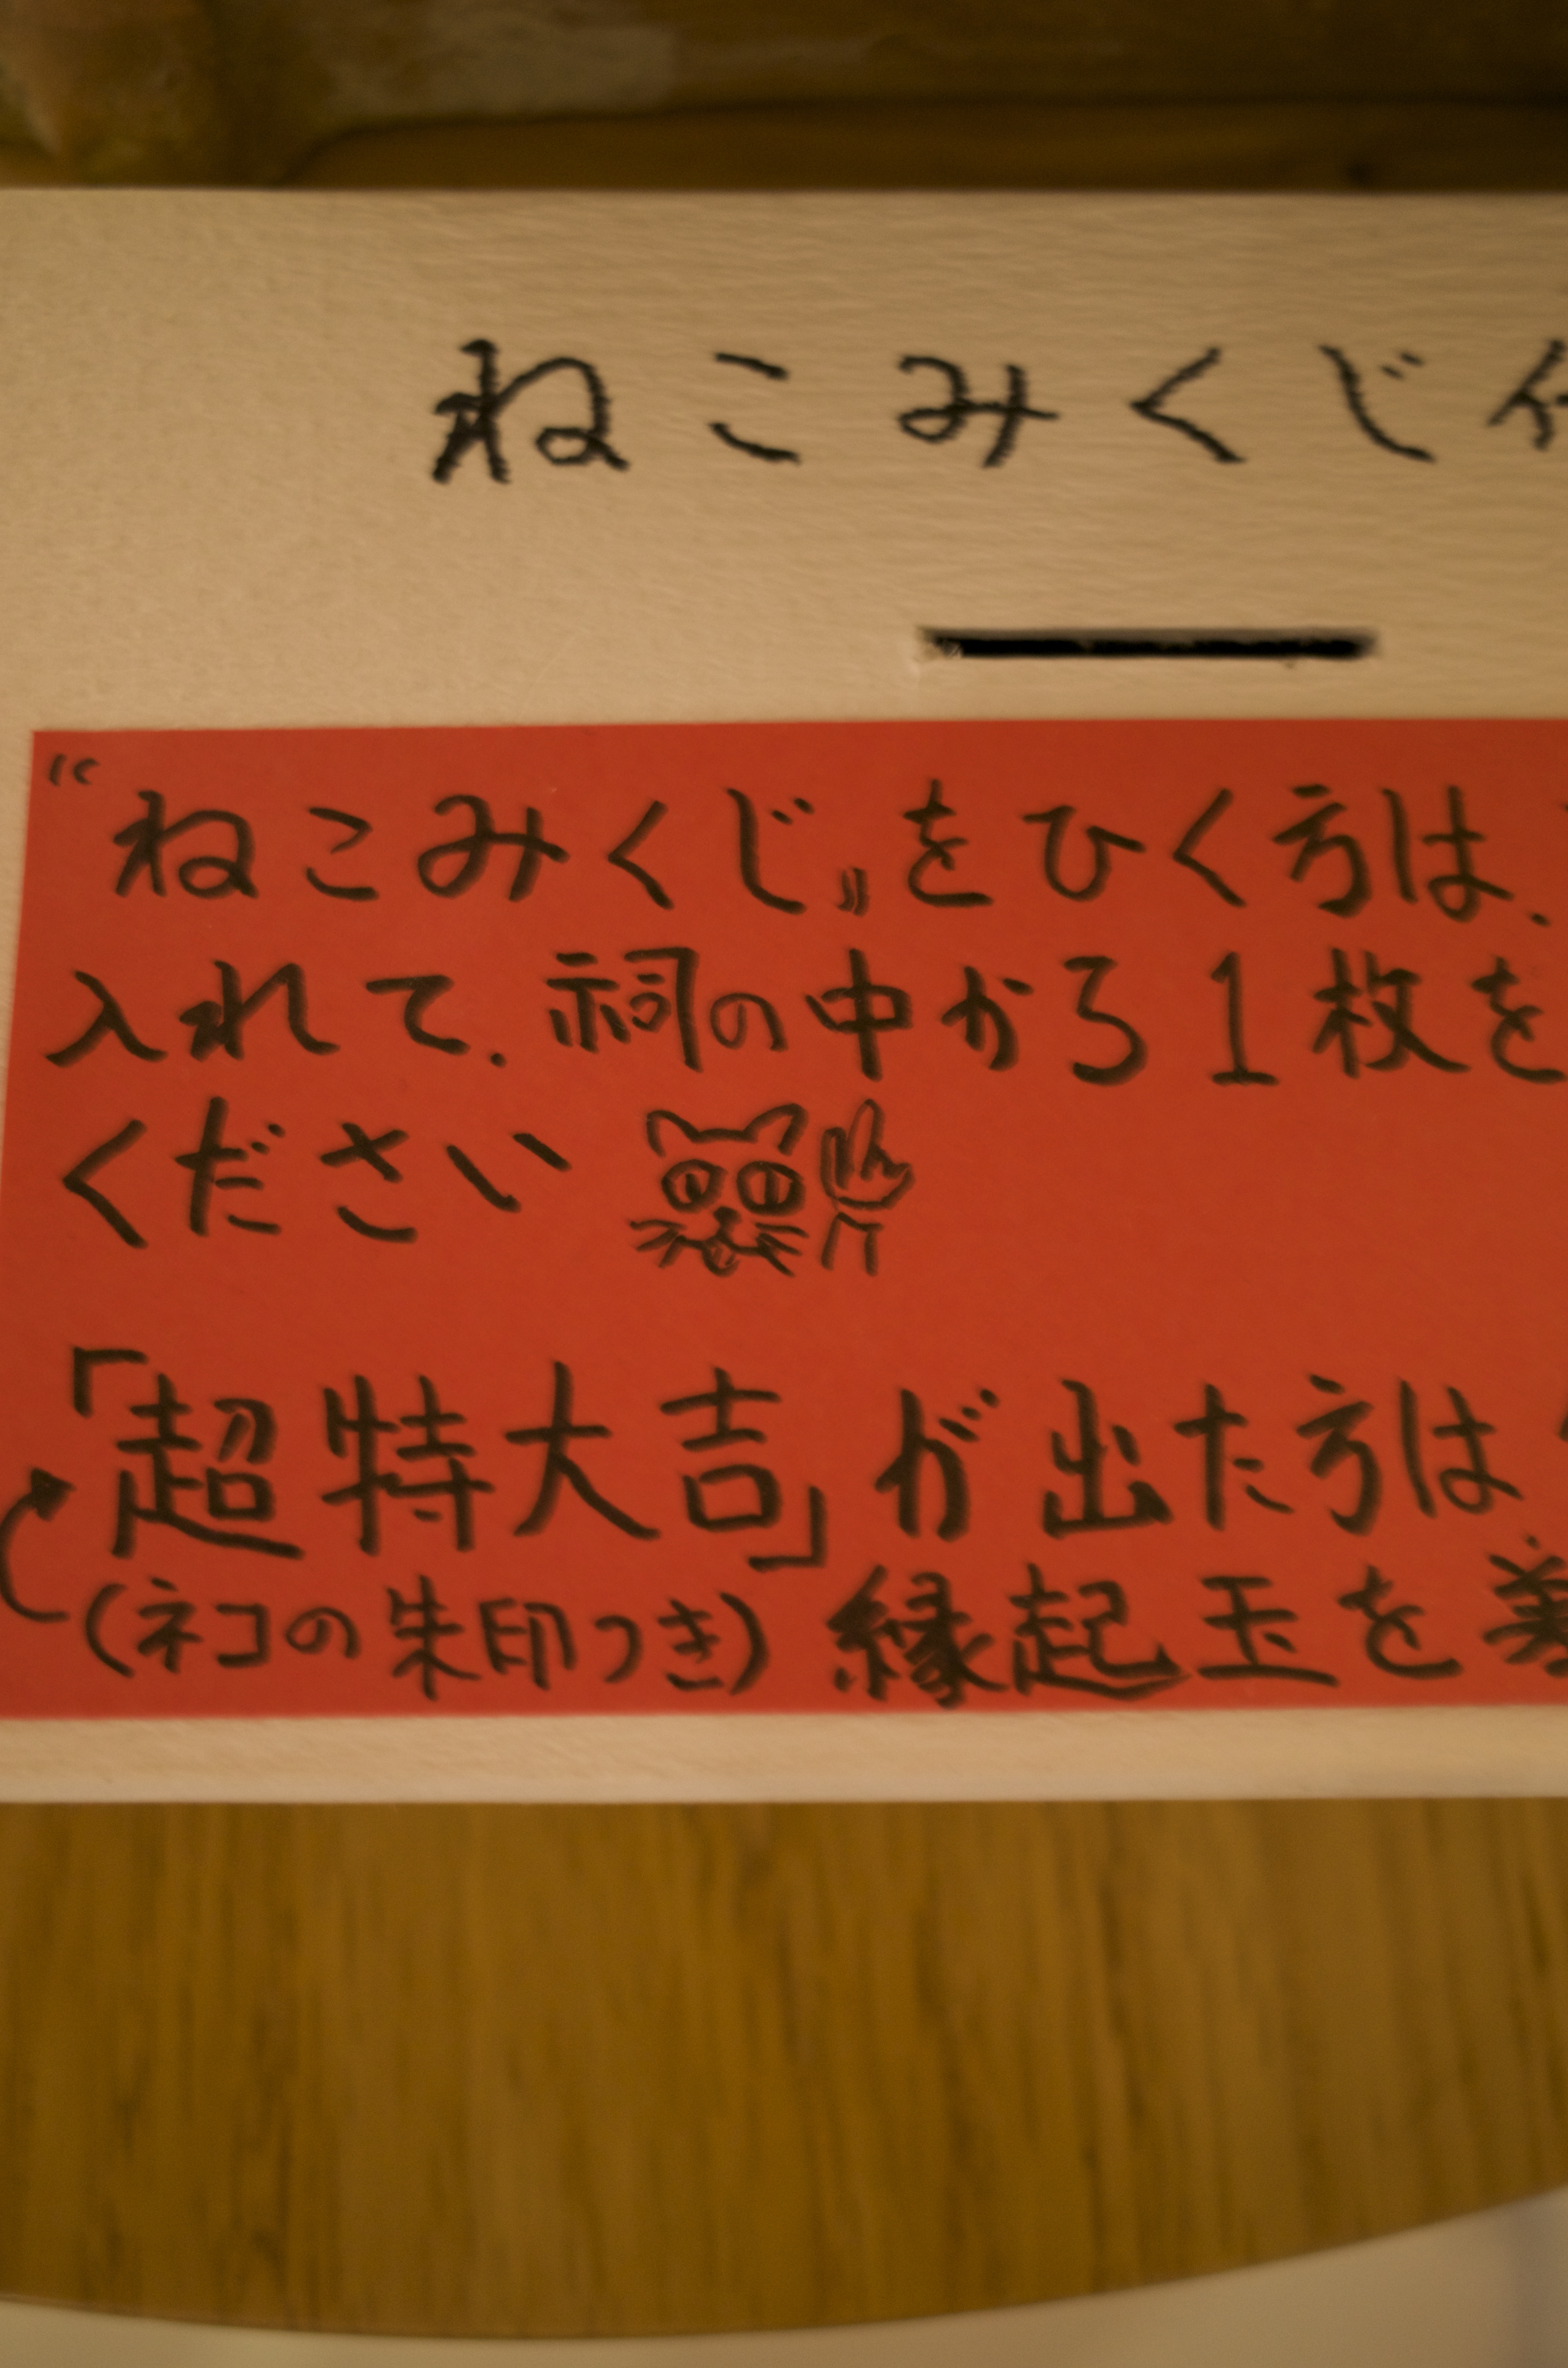 ねこみくじ
“ねこみくじ』をひく方は、
入れて、祠の中から1枚を
ください
「超特大吉」が出た方は
(ネコの朱印つき)縁起玉を